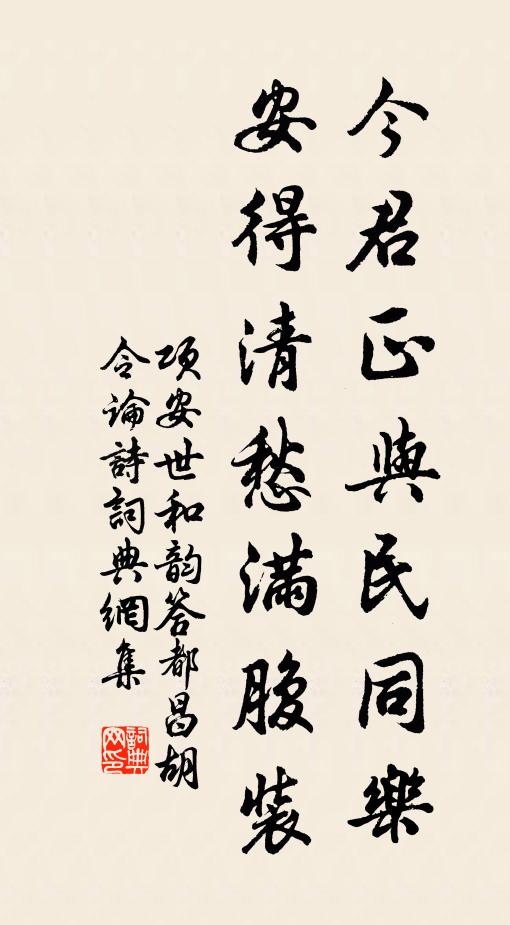 今君正與民同樂
安得清愁滿腹裝
項安世和韵答都昌胡
令論詩詞典網集
詞典
网印